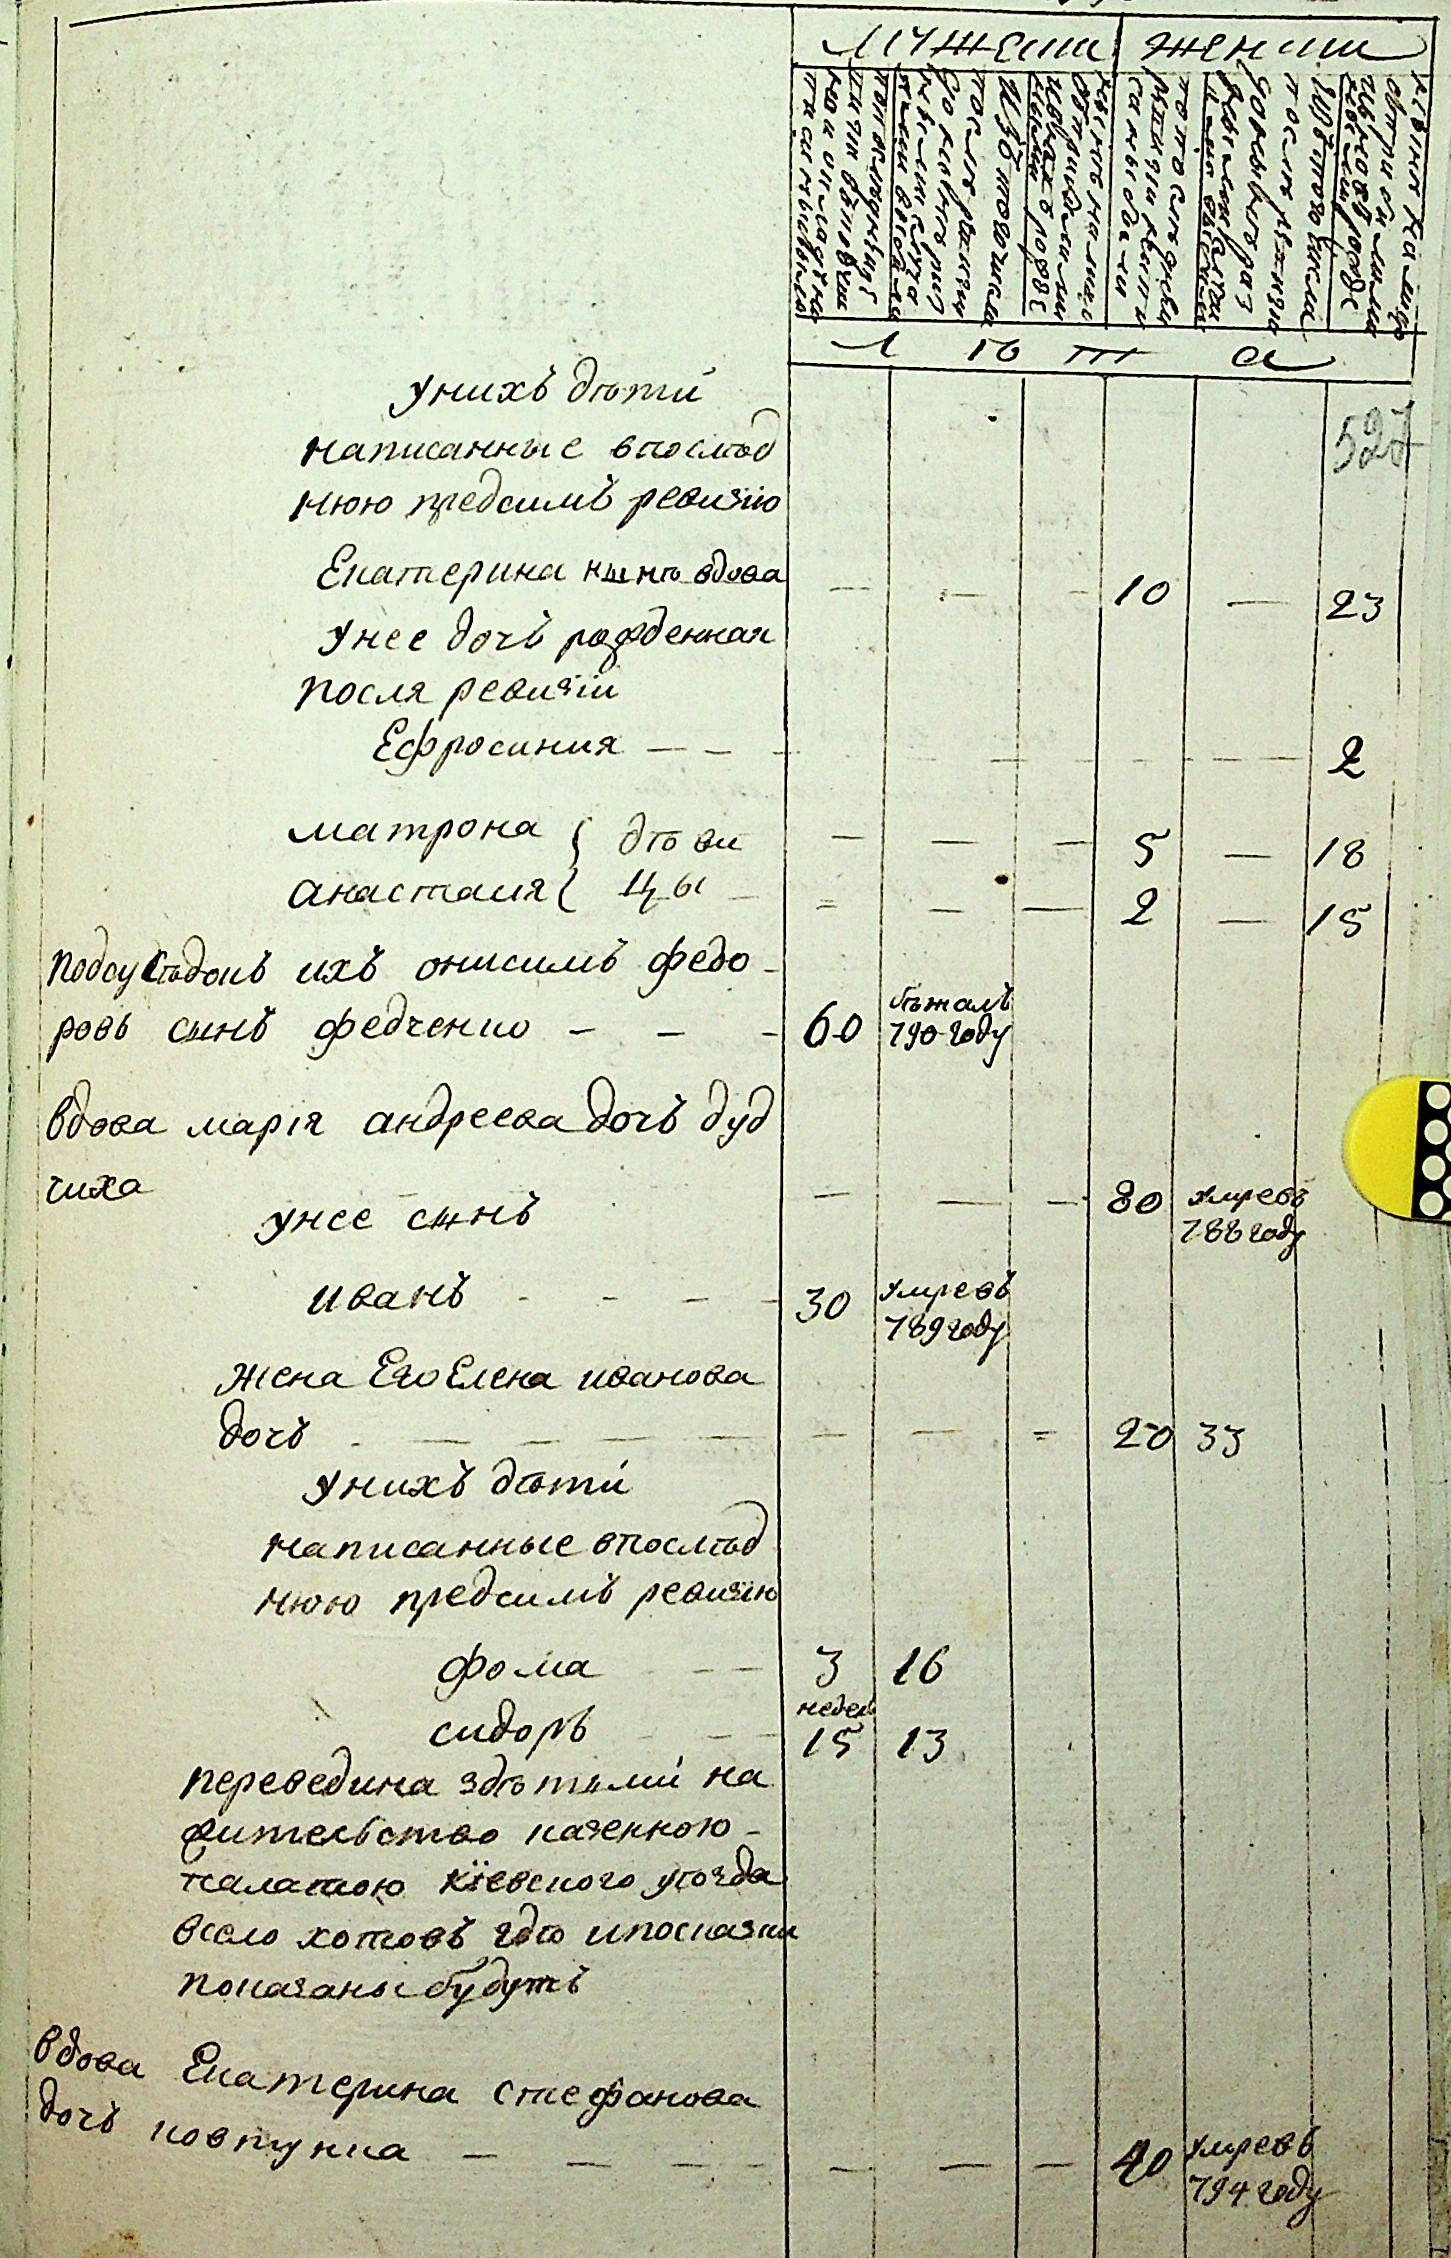 мужеск женски
лѣта
527
унихъ дѣти
написанные впослѣд
нюю предсимъ ревизїю
Екатерина нынѣ вдова — — — 10 — 23
унее дочь рожденная
посля ревизїи
Ефросиния — — — — — — — 2
матрона } дѣви — — — 5 — 18
анастасия } цы — = — — 2 — 15
подсусѣдокъ ихъ онисимъ федо
ровъ сынъ федченко — — — 60 бѣжалъ 790 году
вдова марїя андреева дочь дуд
чиха — — — 80 умревъ 788 году
унее сынъ
иванъ — — — — 30 умревъ 789 году
жена Его Елена иванова
дочь — — — — — — — = 20 33
унихъ дѣти
написанные впослѣд
нюю предсимъ ревизїю
фома — — 3 16
сидоръ — — недель 15 13
переведина здѣтьми на
жительство казенною
палатою кїевского уѣзда
всело хотовъ гдѣ ипосказки
показаны будутъ
вдова Екатерина стефанова
дочь ковтунка — — — — — — — 40 умревъ 794 году